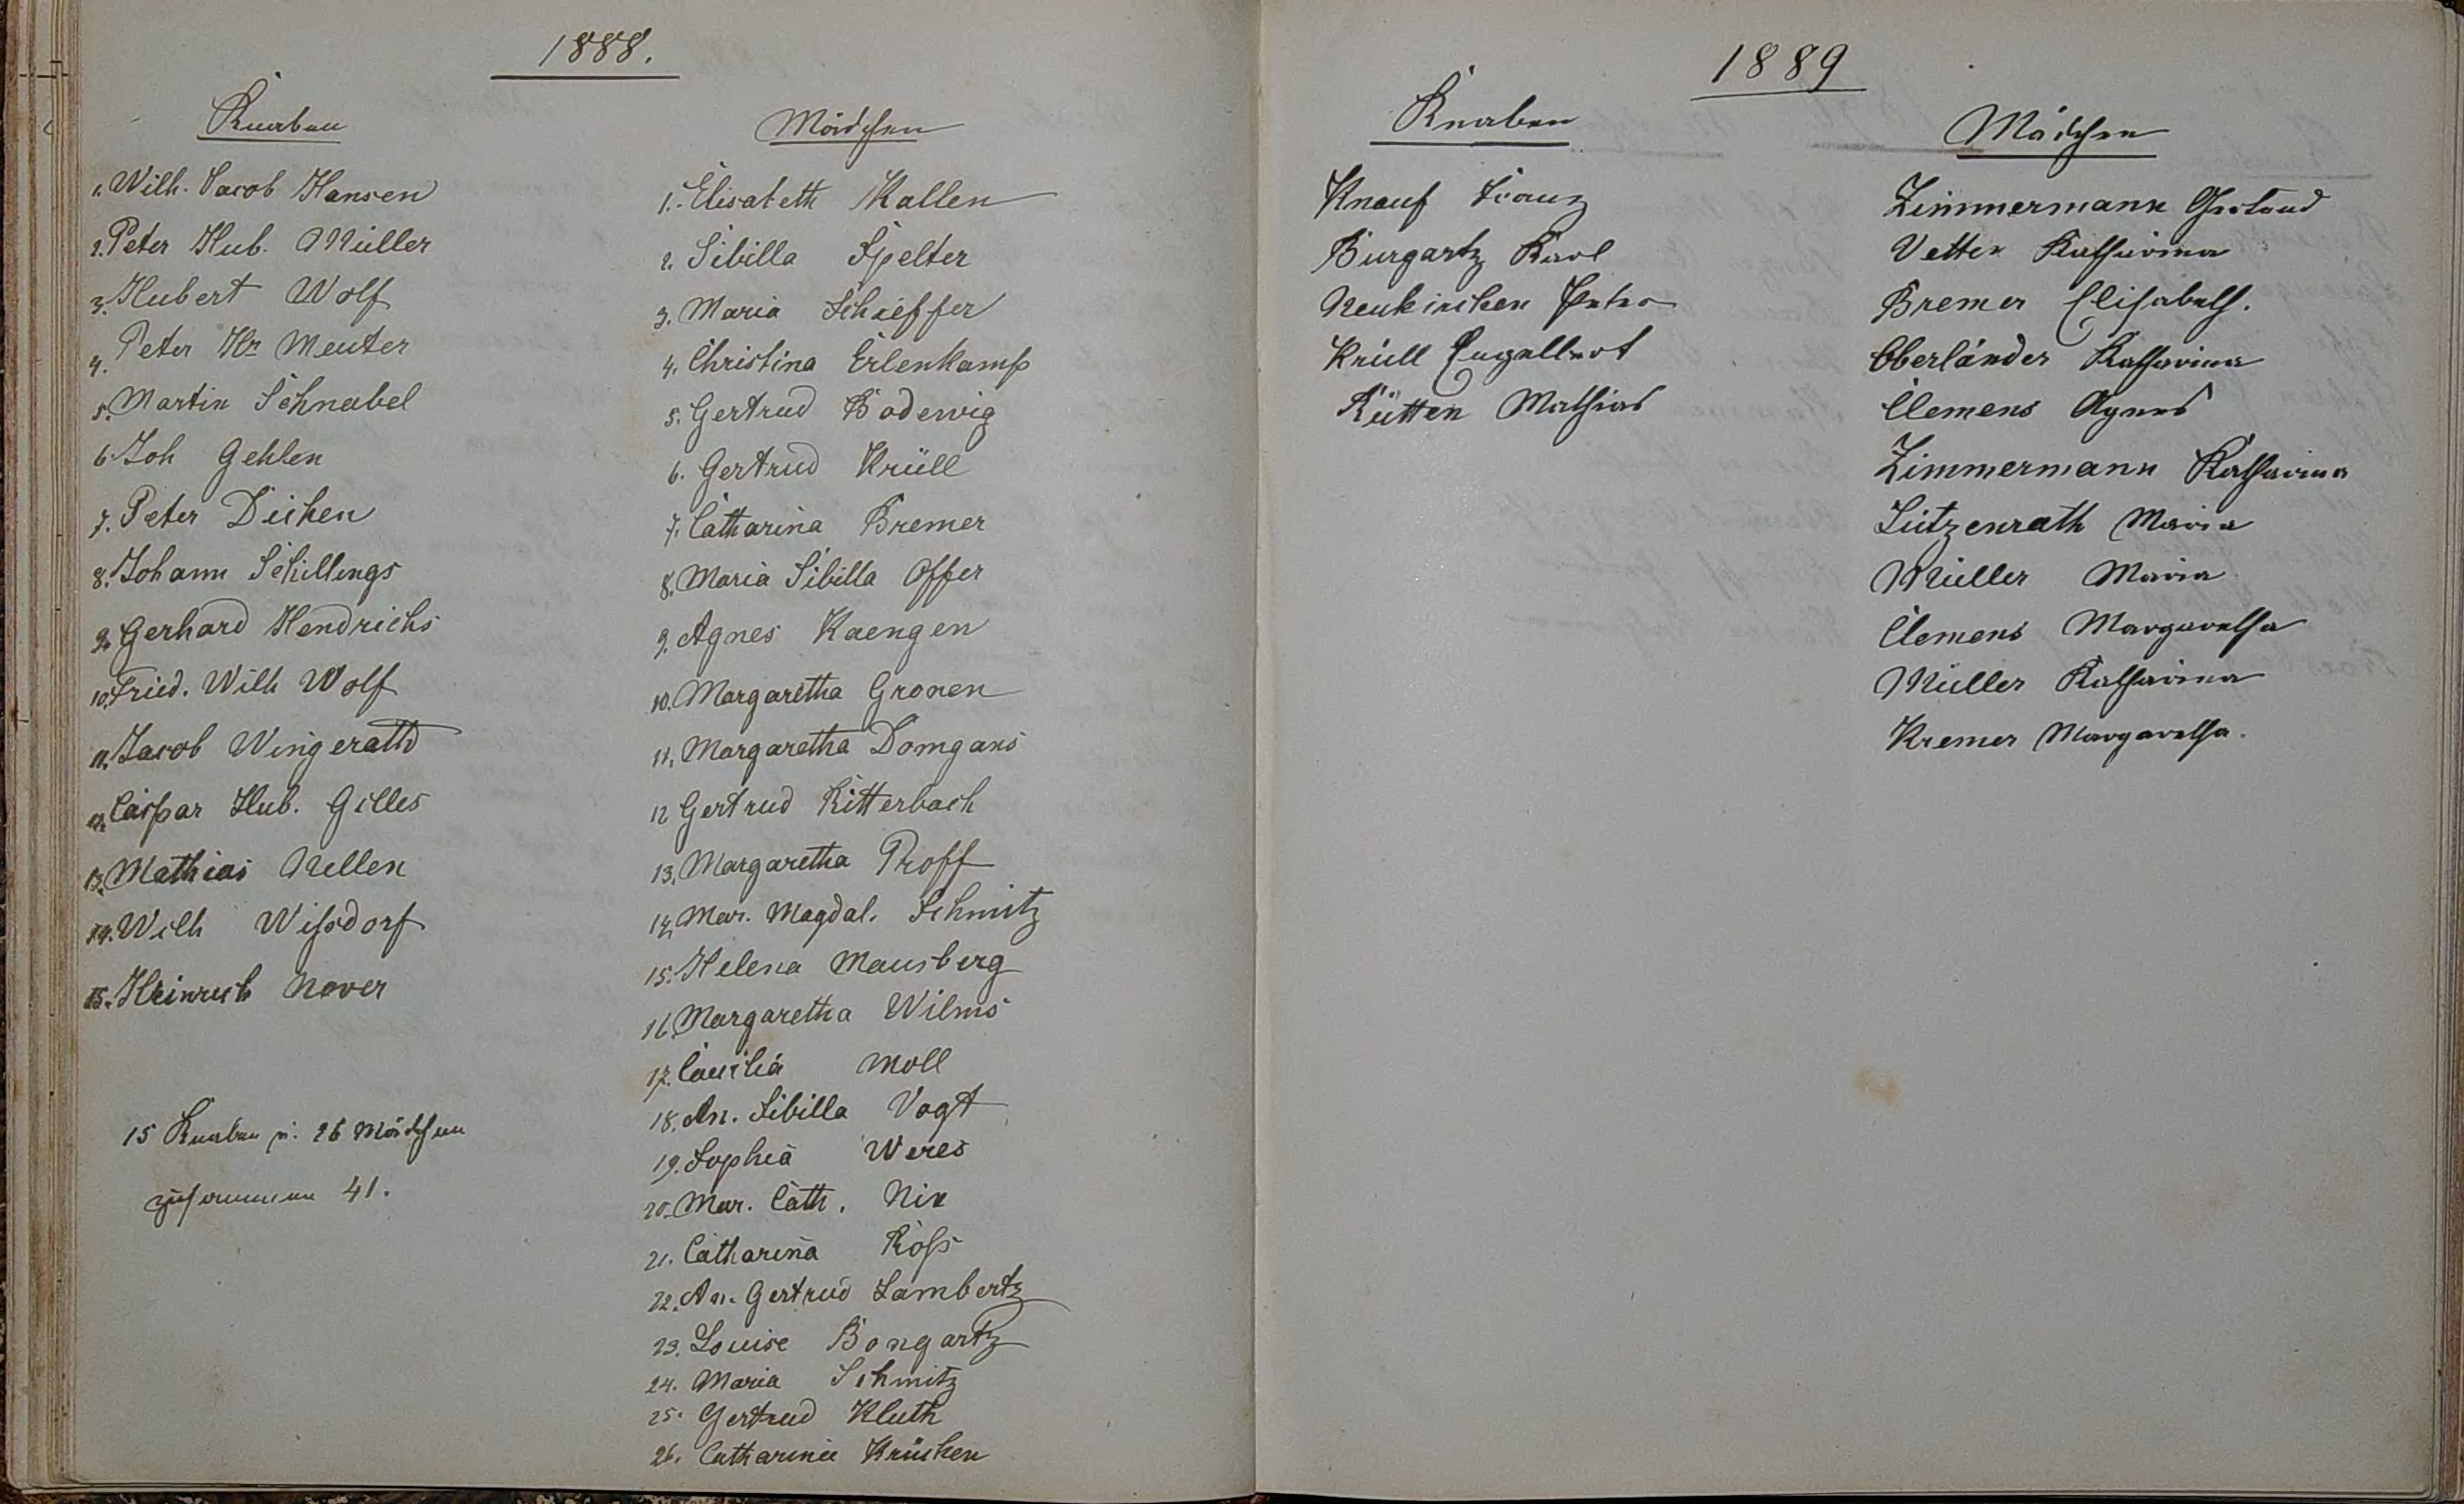 1888.
Knaben
1. Wilh. Jacob Hansen
2. Peter Hub. Müller
3. Hubert Wolf
4. Peter Hr Meuter
5. Martin Schnabel
6. Joh Gehlen
7. Peter Dicken
8. Johann Schillings
9. Gerhard Hendrichs
10. Fried. Wilh Wolf
11. Jacob Wingerath
12. Caspar Hub. Gilles
13. Mathias Nellen
14. Wilh Wißdorf
15. Heinrich Nover
15 Knaben u. 26 Mädchen
zusammen 41.
Mädchen
1. Elisabeth Kallen
2. Sibilla Spelter
3. Maria Schieffer
4. Christina Erlenkamp
5. Gertrud Bodewig
6. Gertrud Krüll
7. Catharina Bremer
8. Maria Sibilla Offer
9. Agnes Kaengen
10. Margaretha Gronen
11. Margaretha Domgans
12 Gertrud Ritterbach
13. Margaretha Proff
14. Mar. Magdal. Schmitz
15. Helena Mausberg
16. Margaretha Wilms
17. Caecilia Moll
18. An. Sibilla Vogt
19. Sophia Weres
20. Mar. Cath. Nix
21. Catharina Roß
22. An. Gertrud Lambertz
23. Louise Bongartz
24. Maria Schmitz
25. Gertrud Kluth
26. Catharina Krücken
1889
Knaben
Knauf Franz
Burgartz Karl
Neukirchen Peter
Krüll Engelbert
Rütten Mathias
Mädchen
Zimmermann Gertrud
Vetter Katharina
Bremer Elisabeth.
Oberländer Katharina
Clemens Agnes
Zimmermann Katharina
Lützenrath Maria
Müller Maria
Clemens Margaretha
Müller Katharina
Kremer Margaretha.